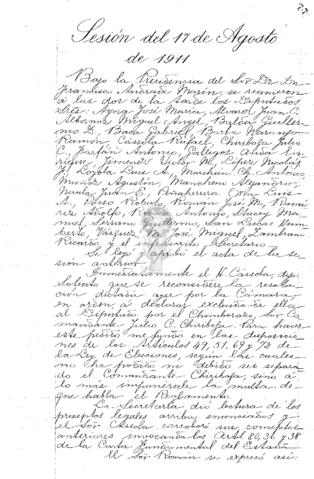 Sesión del 17 de Agosto
de 1911
Bajo la Presidencia del Sr. Dr. Dn.
Francisco Andrade Marín, se reunieron
a las dos de la tarde los Diputados
Sres. Ayora José María, Alvarez Juan C.
Albornoz Miguel Angel, Balda Guiller-
mo D., Baca Gabriel, Barba Naranjo
Ramón, Cássola Rafael, Chiriboga Julio
C., Farfán Antonio, Gallegos Anda En-
rique, Jimenez Víctor M., López Nicolás
F., Loyola Luis A., Marchán Ch. Antonio,
Muñoz Agustín, Mancheno Alejandro,
Navia Juan E.,
A., Posso Roberto, Román José M., Rami-
rez Adolfo, Antonio, Stacey Ma-
nuel, Serrano San Lucas Hum-
berto, Vásquez M. José Miguel, Zambrano
Ricardo, y el infrascrito Secretario.
Se leyó y aprobó el acta de la se-
sión anterior.
Inmediatamente el H. Cássola, dijo:
Solicito que se reconsidere la resolu-
ción dictada ayer por la Cámara
en orden a declarar excluído de ella,
al Diputado por el Chimborazo, Sr. Co-
mandante Julio C. Chiriboga. Para hacer
este pedido me fundo en las disposicio-
nes de los Artículos 49, 51, 69 y 72 de
la Ley de Elecciones, según las cuales
no ha podido ni debido ser separa-
do el Comandante Chiriboga, sino á
lo más imponérsele la multa de
que habla el Reglamento.
La Secretaría dió lectura de los
preceptos legales arriba enunciados y
el Señor Cássola corroboró sus conceptos
anteriores invocando los Artos. 80, 36 y 38
de la Carta Fundamental del Estado.
El Señor Román se expresó así: